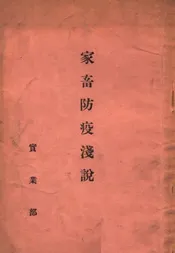 家畜防疫淺說
實業部